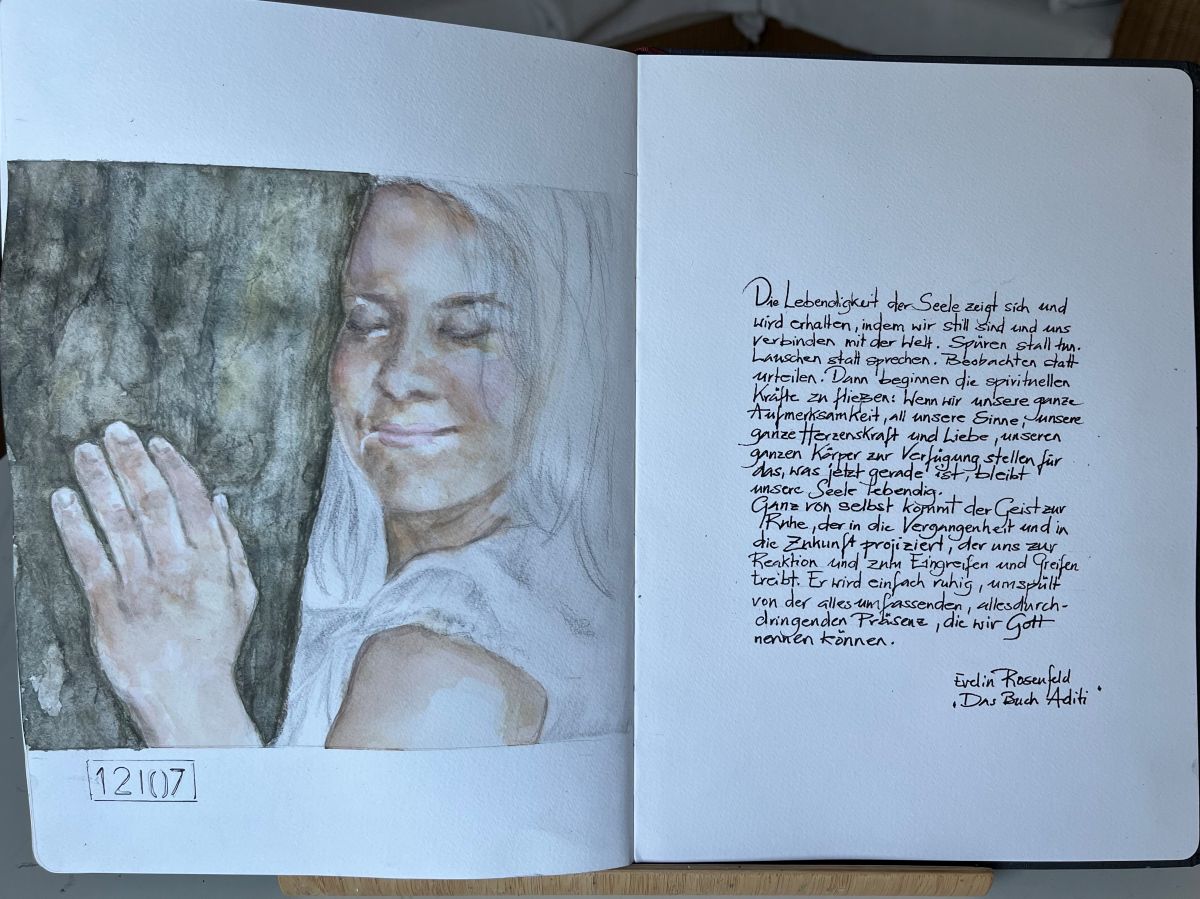 12|07
Die Lebendigkeit der Seele zeigt sich und
wird erhalten, indem wir still sind und uns
verbinden mit der Welt. Spüren statt tun.
Lauschen statt sprechen. Beobachten statt
urteilen. Dann beginnen die spirituellen
Kräfte zu fließen: Wenn wir unsere ganze
Aufmerksamkeit, all unsere Sinne, unsere
ganze Herzenskraft und Liebe, unseren
ganzen Körper zur Verfügung stellen für
das, was jetzt gerade ist, bleibt
unsere Seele lebendig.
Ganz von selbst kommt der Geist zur
Ruhe, der in die Vergangenheit und in
die Zukunft projiziert, der uns zur
Reaktion und zum Eingreifen und Greifen
treibt. Er wird einfach ruhig, umspült
von der allesumfassenden, allesdurch-
dringenden Präsenz, die wir Gott
nennen können.
Evelin Rosenfeld
"Das Buch Aditi"